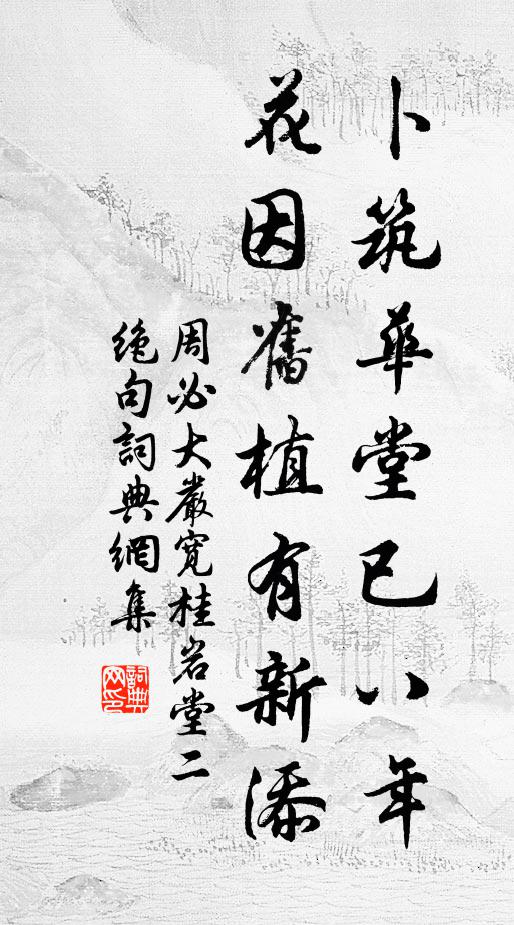 卜筑華堂已八年
花因舊植有新添
周必大嚴寬桂岩堂二
絶句詞典網集
詞典
网印